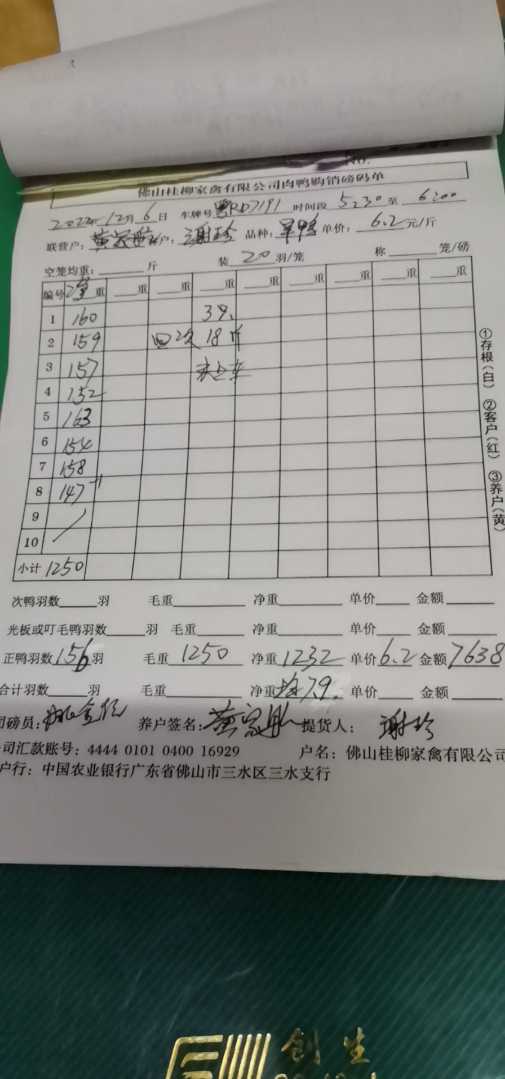 NO.
佛山桂柳家禽有限公司肉鸭购销磅码单
2022年12月6日 车牌号粤RD7191 时间段5:30至6:00
联营户: 黄家 户: 谢玲 品种: 单价: 6.2元/斤
空笼均重: 斤 装20羽/笼 称 笼/磅
编号 2笼重 重 重 重 重 重 重 重
1 160 39.
2 159 四次 18斤
3 157
4 152
5 163
6 154
7 158
8 147
9
10
小计 1250
次鸭羽数 羽 毛重 净重 单价 金额
光板或叮毛鸭羽数 羽 毛重 净重 单价 金额
正鸭羽数156羽 毛重1250 净重1232 单价6.2金额7638
合计羽数 羽 毛重 净重均7.9. 单价 金额
司磅员: 养户签名: 黄家 提货人: 谢玲
司汇款账号: 4444 0101 0400 16929 户名: 佛山桂柳家禽有限公司
户行: 中国农业银行广东省佛山市三水区三水支行
①存根(白) ②客户(红) ③养户(黄)
创生